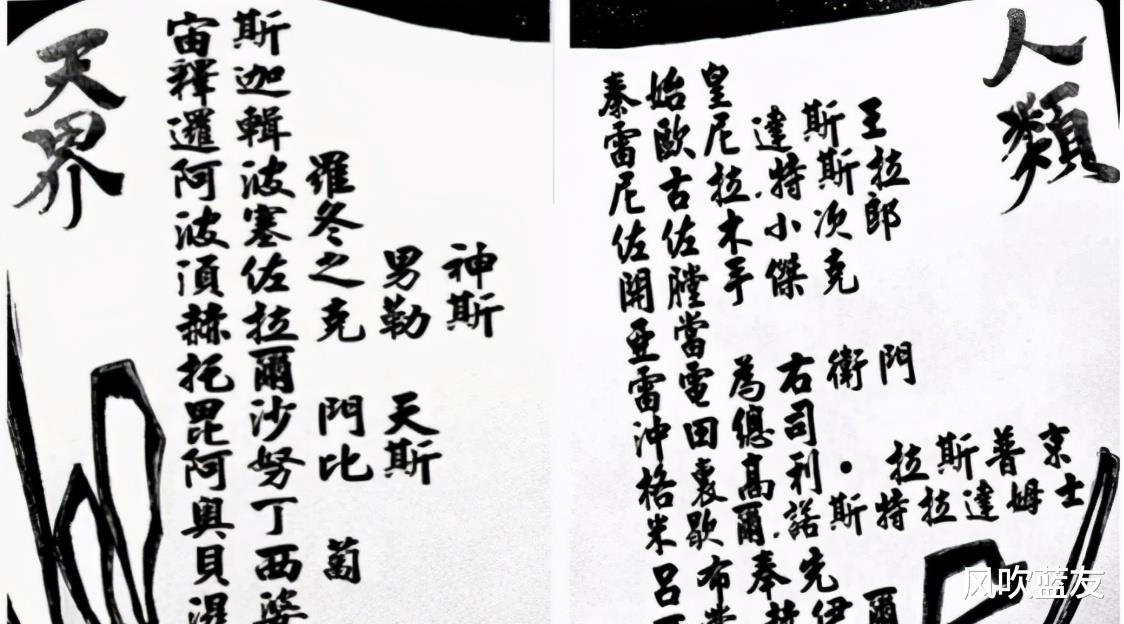 天界
宙斯
釋迦
邏輯
阿波羅
波塞冬
湏佐之男神
赫拉克勒斯
托爾
毘沙門天
阿努比斯
奧丁
貝西葡
濕婆
人類
秦始皇
雷歐尼達斯王
尼古拉.特斯拉
佐佐木小次郎
開膛手傑克
亞當
雷電為右衛門
沖田總司
格裏高利·拉斯普京
米歇爾.諾斯特拉達姆士
呂布奉先
風吹蓝友